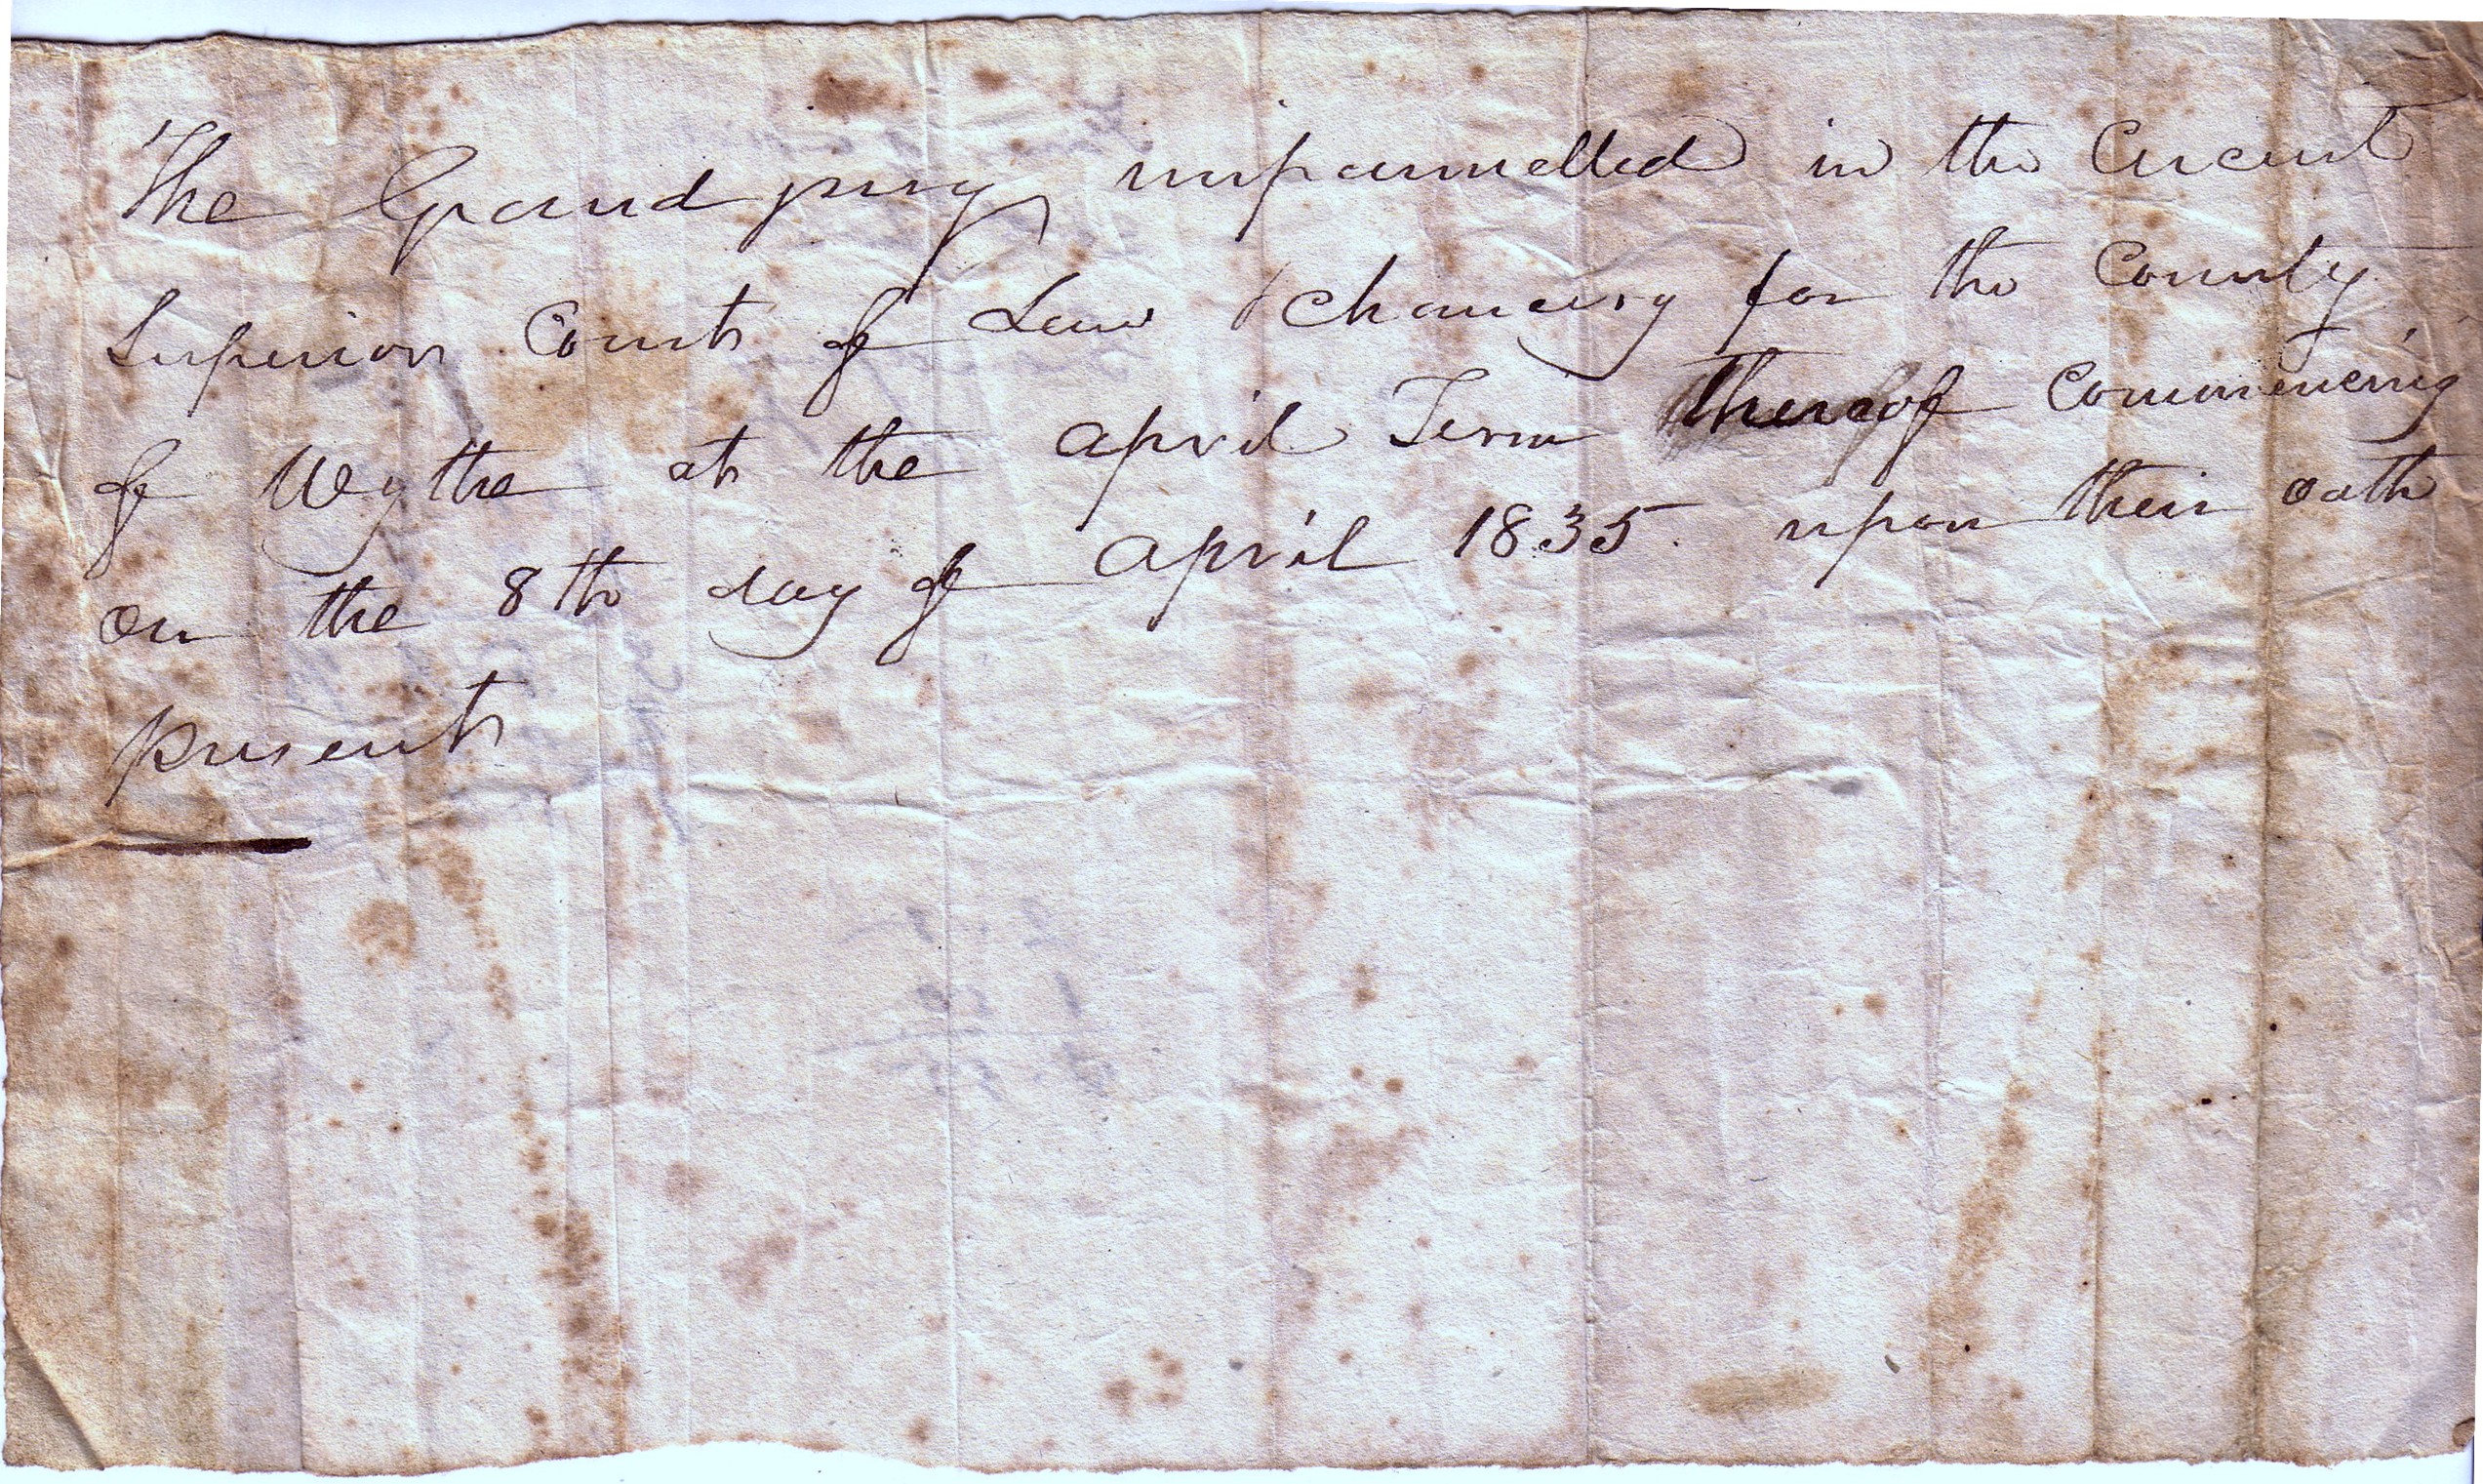 The Grand jury impannelled in the Circuit
Superior Court of Law & Chancery for the County
of Wythe at the april Term thereof Commencing
on the 8th day of april 1835. upon their oath
present